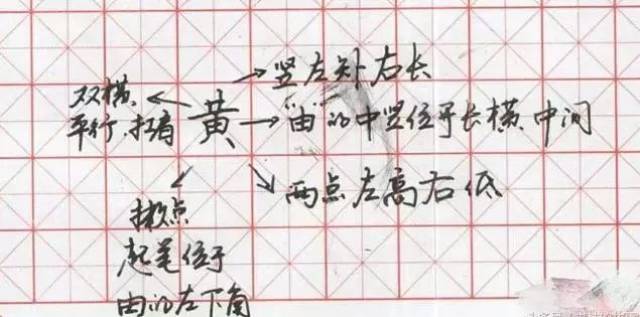 竖左短右长
双横
平行.扛肩
黄
"由"的中竖位于长横中间
两点左高右低
撇点
起笔位于
由的左下角